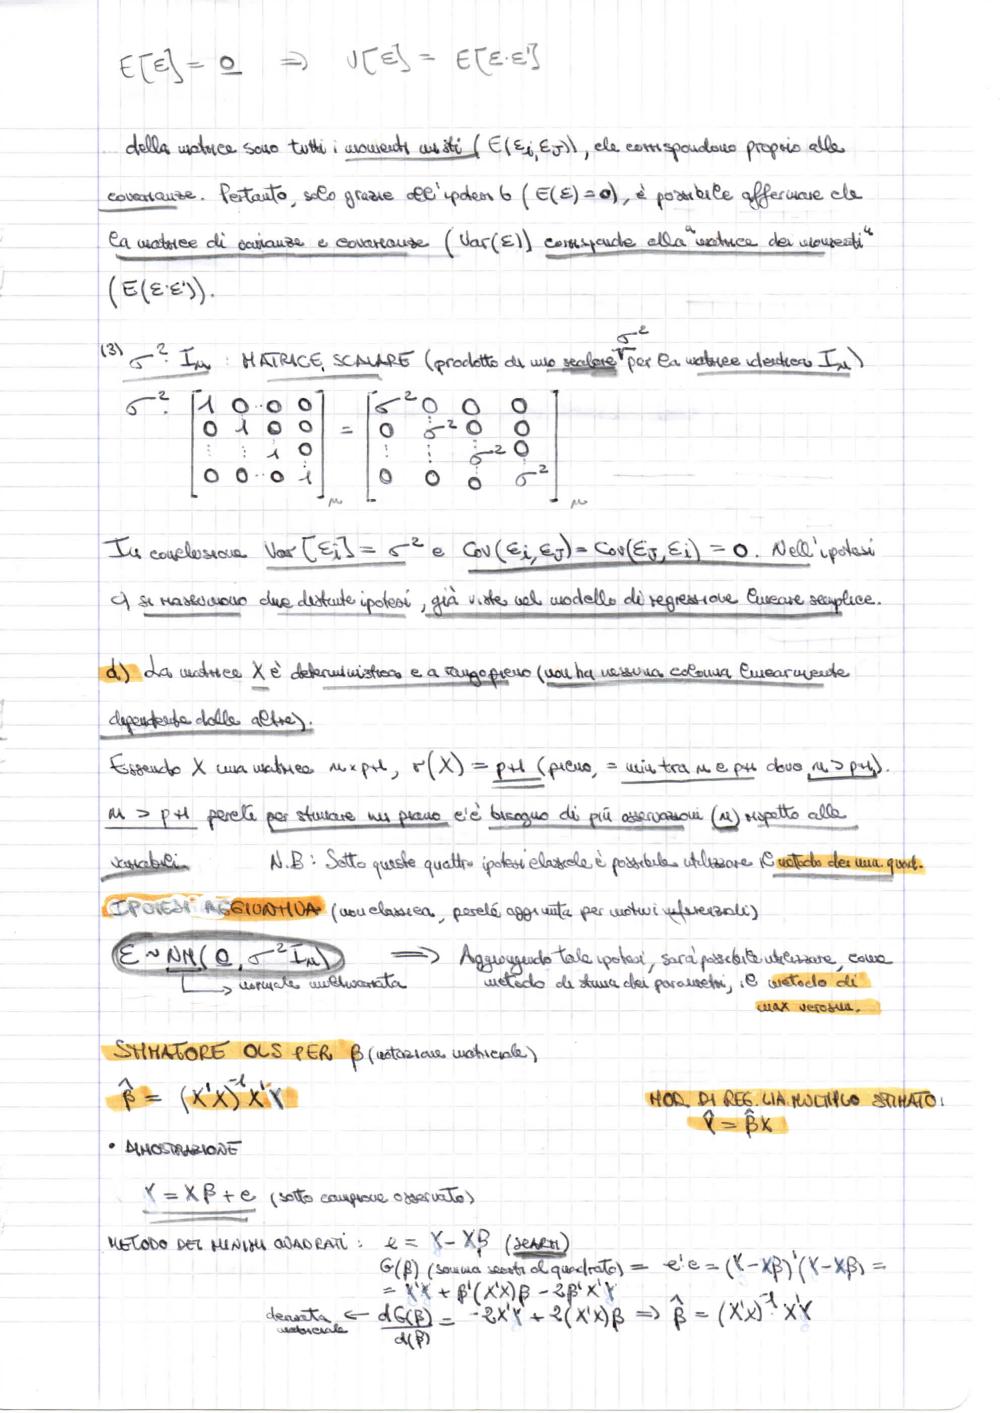 E[ε] = 0 ⇒ V[ε] = E[ε·ε']
della matrice sono tutti i momenti misti (E(εi,εJ)), che corrispondono proprio alle
covarianze. Pertanto, solo grazie all'ipotesi b (E(ε)=0), è possibile affermare che
la matrice di varianze e covarianze (Var(ε)) corrisponde alla "matrice dei momenti"
(E(ε·ε')).
(3) σ²·In : MATRICE SCALARE (prodotto di uno scalare σ² per la matrice identica In)
σ²· [1 0..0 0] = [σ² 0 0 0]
[0 1 0 0] [0 σ² 0 0]
[: : 1 0] [: : σ² 0]
[0 0..0 1]n [0 0 0 σ²]n
In conclusione Var[εi] = σ² e Cov(εi,εJ) = Cov(εJ,εi) = 0. Nell'ipotesi
c) si riassumono due distinte ipotesi, già viste nel modello di regressione lineare semplice.
d.) La matrice X è deterministica e a rango pieno (non ha nessuna colonna linearmente
dipendente dalle altre).
Essendo X una matrice n×p+1, r(X) = p+1 (pieno, = min tra n e p+1 dove n > p+1).
n > p+1 perché per stimare un piano c'è bisogno di più osservazioni (n) rispetto alle
variabili. N.B: Sotto queste quattro ipotesi classiche è possibile utilizzare il metodo dei min. quad.
IPOTESI AGGIUNTIVA (non classica, perché aggiunta per motivi inferenziali)
ε ~ NM(0, σ²In) ⟹ Aggiungendo tale ipotesi, sarà possibile utilizzare, come
↳ normale multivariata metodo di stima dei parametri, il metodo di
max verosim.
STIMATORE OLS PER β (notazione matriciale)
β̂ = (X'X)⁻¹X'Y MOD. DI REG. LIN. MULTIPLO STIMATO:
Ŷ = β̂X
• DIMOSTRAZIONE
Y = Xβ + e (sotto campione osservato)
METODO DEI MINIMI QUADRATI: e = Y - Xβ (SCARTI)
G(β) (somma scarti al quadrato) = e'e = (Y-Xβ)'(Y-Xβ) =
= Y'Y + β'(X'X)β - 2β'X'Y
derivata matriciale ← dG(β)/d(β) = -2X'Y + 2(X'X)β ⇒ β̂ = (X'X)⁻¹·X'Y